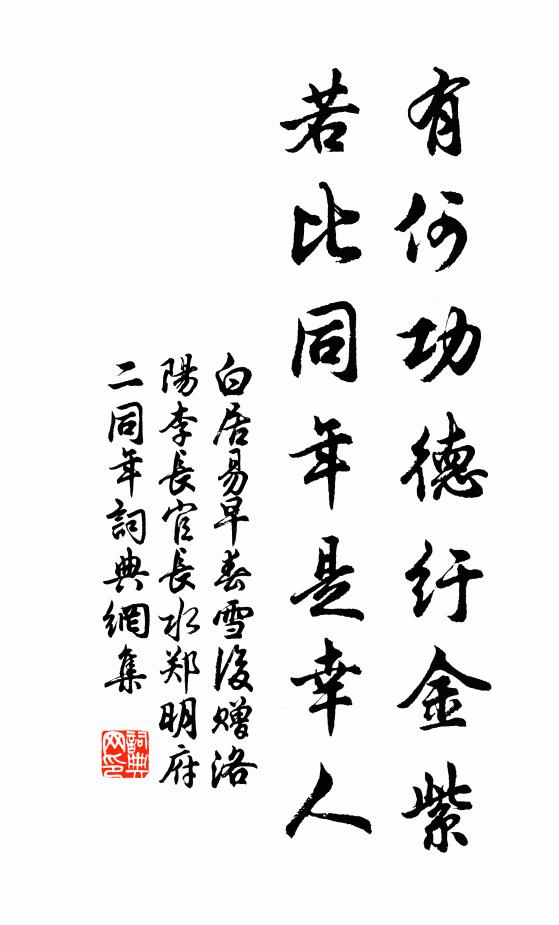 有何功德纡金紫
若比同年是幸人
白居易早春雪後赠洛
陽李長官長水郑明府
二同年詞典網集
詞典
网印